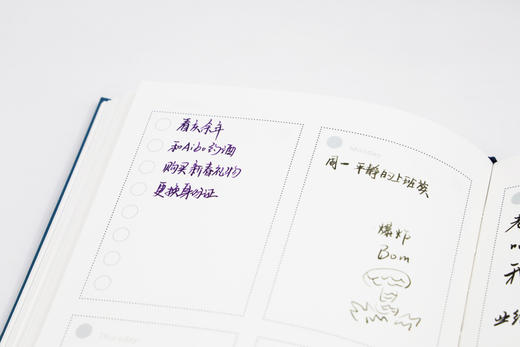 看庆余年
和Aibo约酒
购买新春礼物
更换身份证
Monday
周一 平静的上班族
爆炸
Bom
Thursday